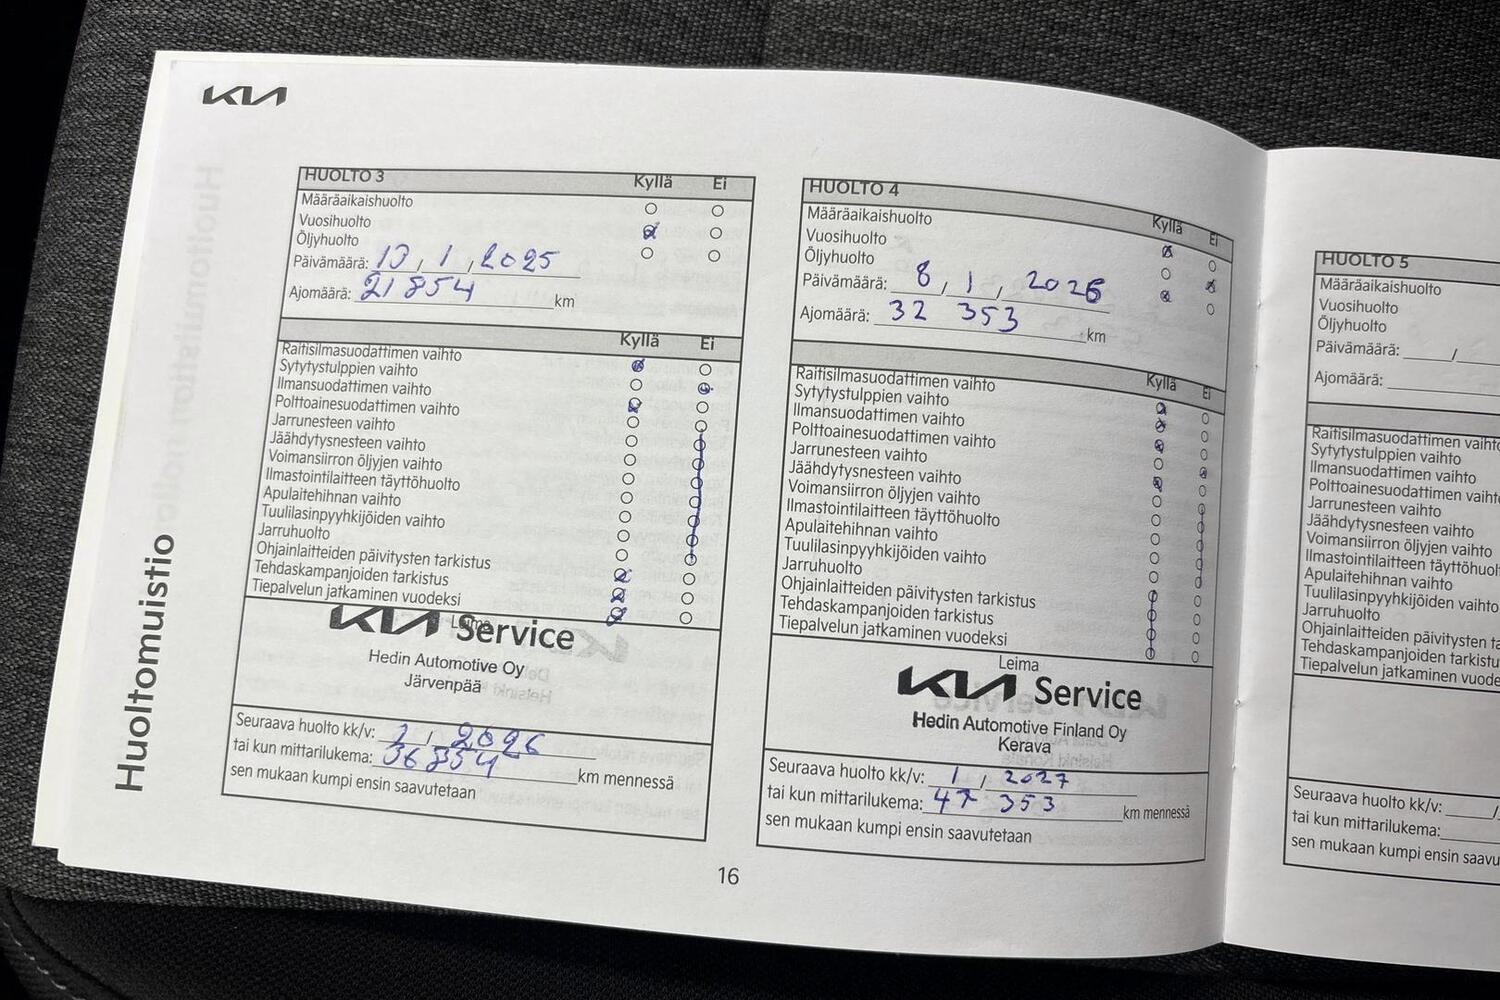 KIA
Huoltomuistio
HUOLTO 3 Kyllä Ei
Määräaikaishuolto
Vuosihuolto
Öljyhuolto
Päivämäärä: 10, 1, 2025
Ajomäärä: 21 854 km
Kyllä Ei
Raitisilmasuodattimen vaihto
Sytytystulppien vaihto
Ilmansuodattimen vaihto
Polttoainesuodattimen vaihto
Jarrunesteen vaihto
Jäähdytysnesteen vaihto
Voimansiirron öljyjen vaihto
Ilmastointilaitteen täyttöhuolto
Apulaitehihnan vaihto
Tuulilasinpyyhkijöiden vaihto
Jarruhuolto
Ohjainlaitteiden päivitysten tarkistus
Tehdaskampanjoiden tarkistus
Tiepalvelun jatkaminen vuodeksi
Leima
KIA Service
Hedin Automotive Oy
Järvenpää
Seuraava huolto kk/v: 1, 2026
tai kun mittarilukema: 36 854 km mennessä
sen mukaan kumpi ensin saavutetaan
HUOLTO 4 Kyllä Ei
Määräaikaishuolto
Vuosihuolto
Öljyhuolto
Päivämäärä: 8, 1, 2026
Ajomäärä: 32 353 km
Kyllä Ei
Raitisilmasuodattimen vaihto
Sytytystulppien vaihto
Ilmansuodattimen vaihto
Polttoainesuodattimen vaihto
Jarrunesteen vaihto
Jäähdytysnesteen vaihto
Voimansiirron öljyjen vaihto
Ilmastointilaitteen täyttöhuolto
Apulaitehihnan vaihto
Tuulilasinpyyhkijöiden vaihto
Jarruhuolto
Ohjainlaitteiden päivitysten tarkistus
Tehdaskampanjoiden tarkistus
Tiepalvelun jatkaminen vuodeksi
Leima
KIA Service
Hedin Automotive Finland Oy
Kerava
Seuraava huolto kk/v: 1, 2027
tai kun mittarilukema: 47 353 km mennessä
sen mukaan kumpi ensin saavutetaan
16
HUOLTO 5
Määräaikaishuolto
Vuosihuolto
Öljyhuolto
Päivämäärä: /
Ajomäärä:
Raitisilmasuodattimen vaihto
Sytytystulppien vaihto
Ilmansuodattimen vaihto
Polttoainesuodattimen vaiht
Jarrunesteen vaihto
Jäähdytysnesteen vaihto
Voimansiirron öljyjen vaihto
Ilmastointilaitteen täyttöhuol
Apulaitehihnan vaihto
Tuulilasinpyyhkijöiden vaihto
Jarruhuolto
Ohjainlaitteiden päivitysten ta
Tehdaskampanjoiden tarkistus
Tiepalvelun jatkaminen vuode
Seuraava huolto kk/v: /
tai kun mittarilukema:
sen mukaan kumpi ensin saavu